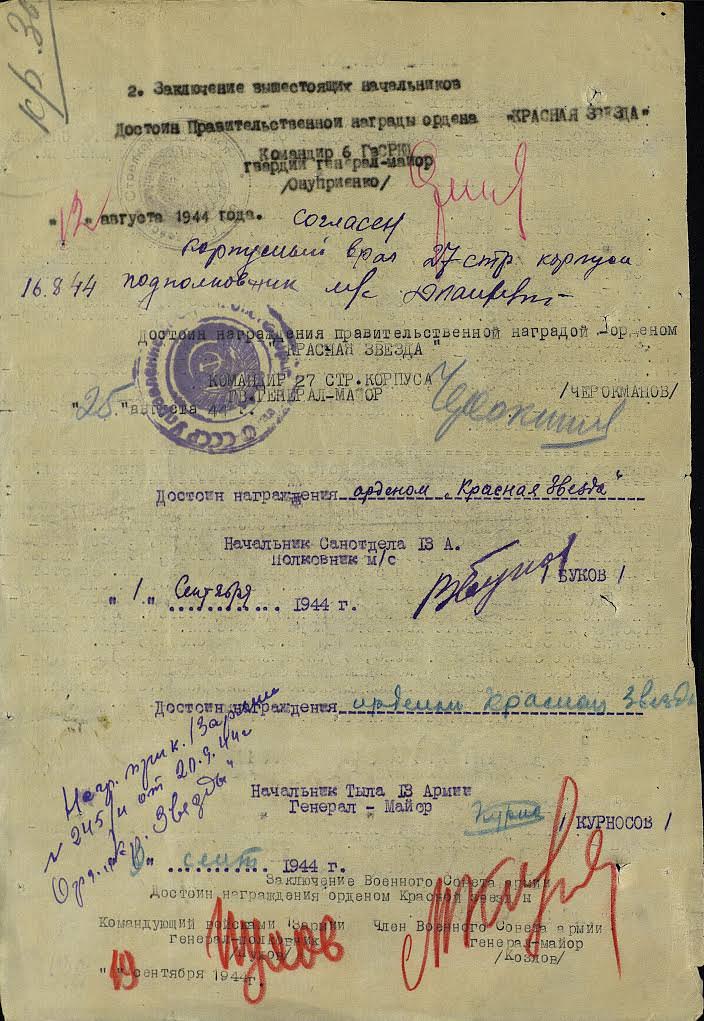 кр. Зв
2. Заключение вышестоящих начальников
Достоин Правительственной награды ордена "КРАСНАЯ ЗВЕЗДА"
Командир 6 ГвСРКД
гвардии генерал-майор
/Онуприенко/
"12" августа 1944 года.
согласен
Корпусный врач 27 стр корпуса
16.8.44 подполковник м/с
Достоин награждения правительственной наградой орденом
"КРАСНАЯ ЗВЕЗДА"
КОМАНДИР 27 СТР.КОРПУСА
ГВ.ГЕНЕРАЛ-МАЙОР /ЧЕРОКМАНОВ/
"25" августа 44 г.
СССР Управление
Достоин награждения орденом "Красная Звезда"
Начальник Санотдела 13 А.
Полковник м/с
/ БУКОВ /
"1" Сентября 1944 г.
Достоин награждения орденом Красная Звезда
Нагр. прик. 13 армии
N 245/н от 20.9.44г
Орд. "Кр. Звезды"
Начальник Тыла 13 Армии
Генерал - Майор
/ КУРНОСОВ /
" сент 1944 г.
Заключение Военного Совета армии
Достоин награждения орденом Красной звезды
Командующий войсками 13армии Член Военного Совета армии
генерал-полковник генерал-майор
/Пухов/ /Козлов/
"19" сентября 1944г.